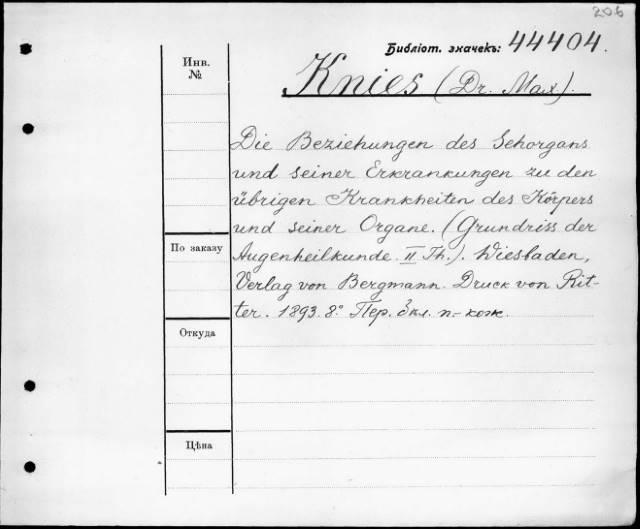 206
Библіот. значекъ: 44404.
Инв.
№
Knies (Dr. Max).
Die Beziehungen des Sehorgans
und seiner Erkrankungen zu den
übrigen Krankheiten des Körpers
und seiner Organe. (Grundriss der
По заказу
Augenheilkunde. II Th.). Wiesbaden,
Verlag von Bergmann. Druck von Rit-
ter. 1893. 8° Пер. 3 кл. п.-кож.
Откуда
Цѣна